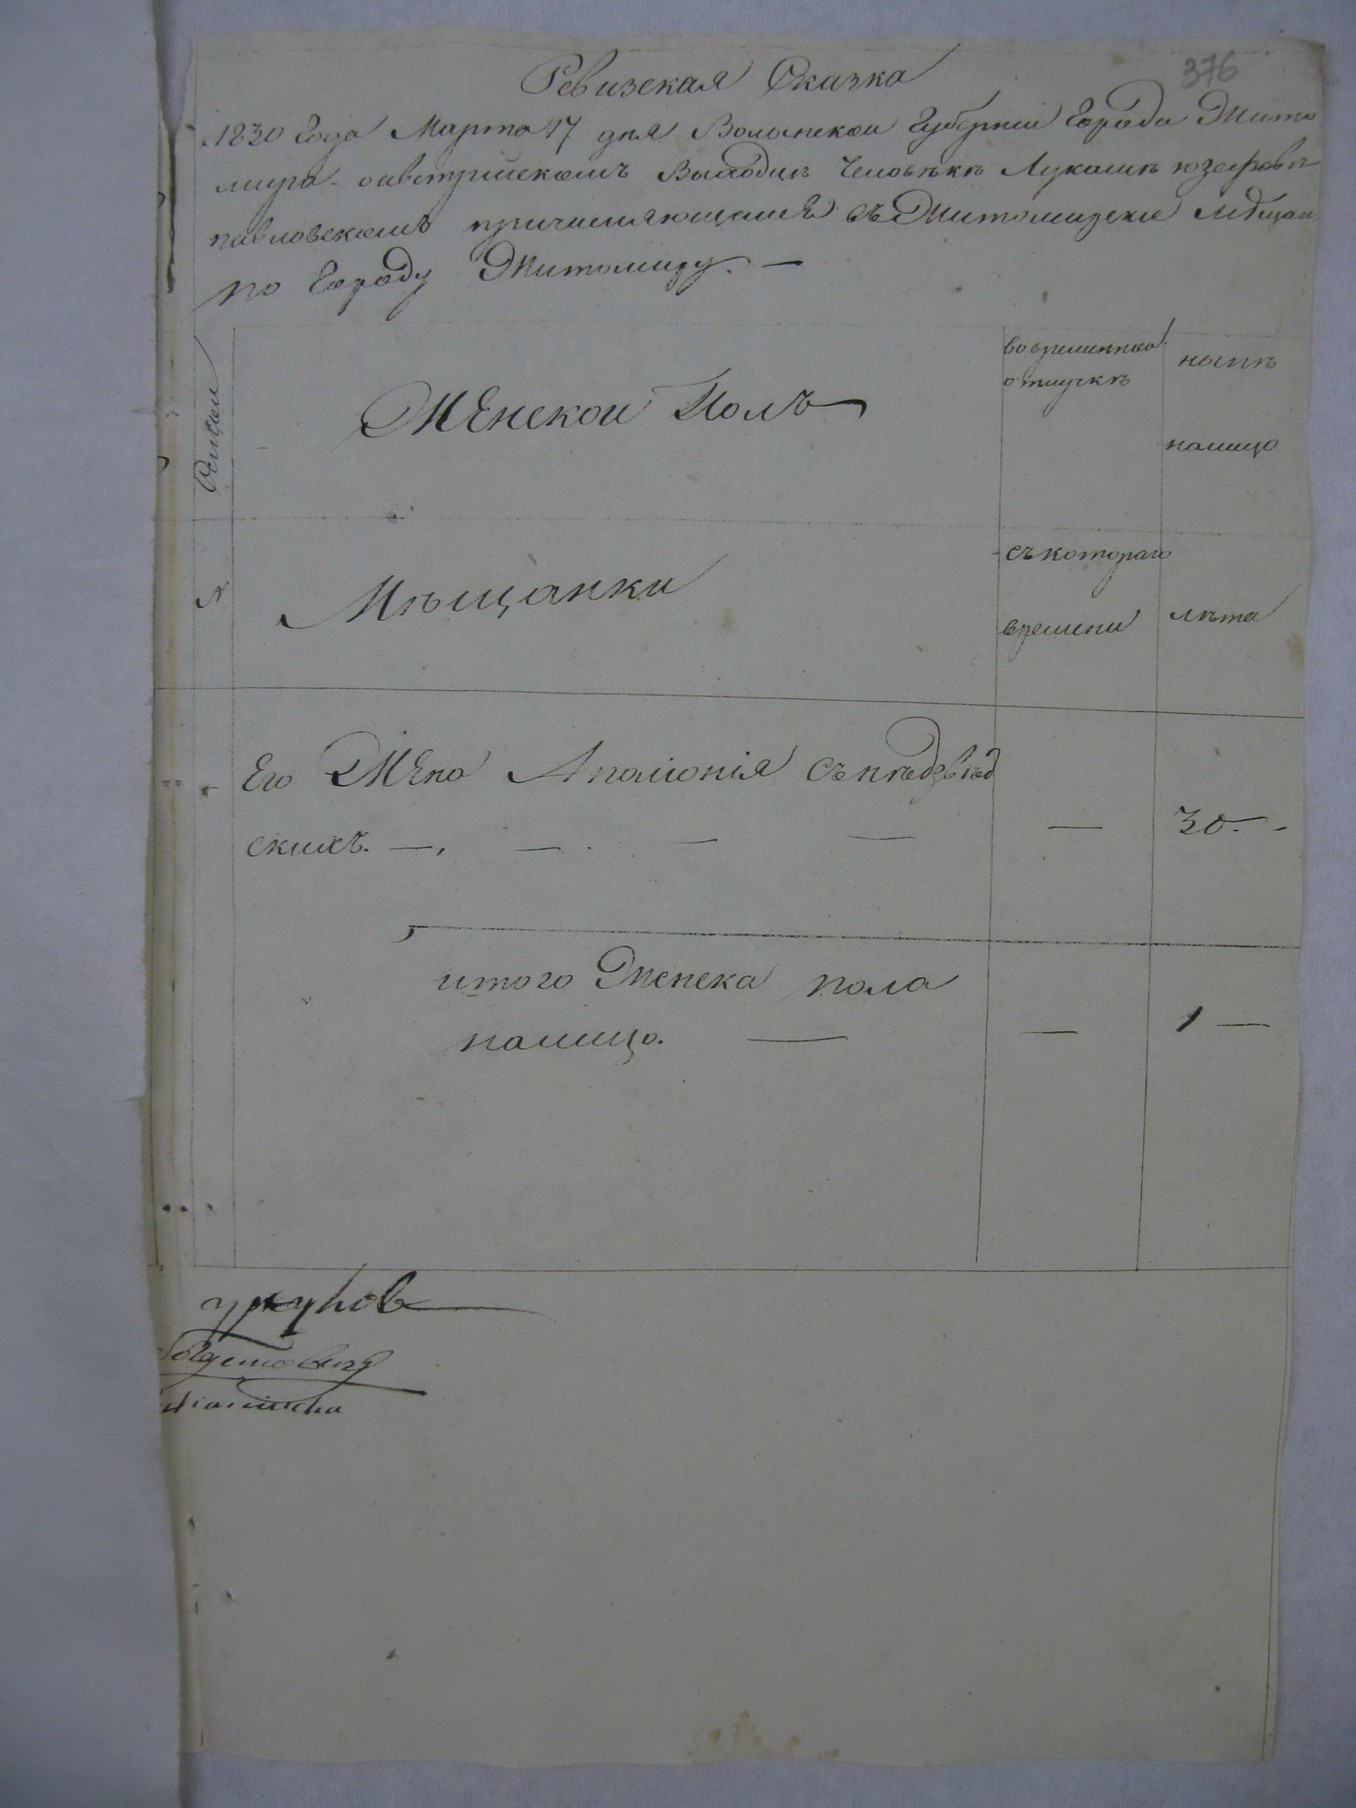 376
Ревизская Сказка
1830 Года Марта 17 дня Волынской Губернии Города Жито
мира о австрийскомъ Выходцѣ Человѣкѣ Лукашѣ Юзефовѣ
павловскомъ причисляющемся въ Житомирские мѣщан
по Городу Житомиру. —
Женской Полъ
во временной
отлучкѣ
нынѣ
налицо
Мѣщанки
съ котораго
времени
лѣта
Его Жена Аполонiя
скихъ. — — — — — 30. -
итого Женска пола
налицо. — — 1 —